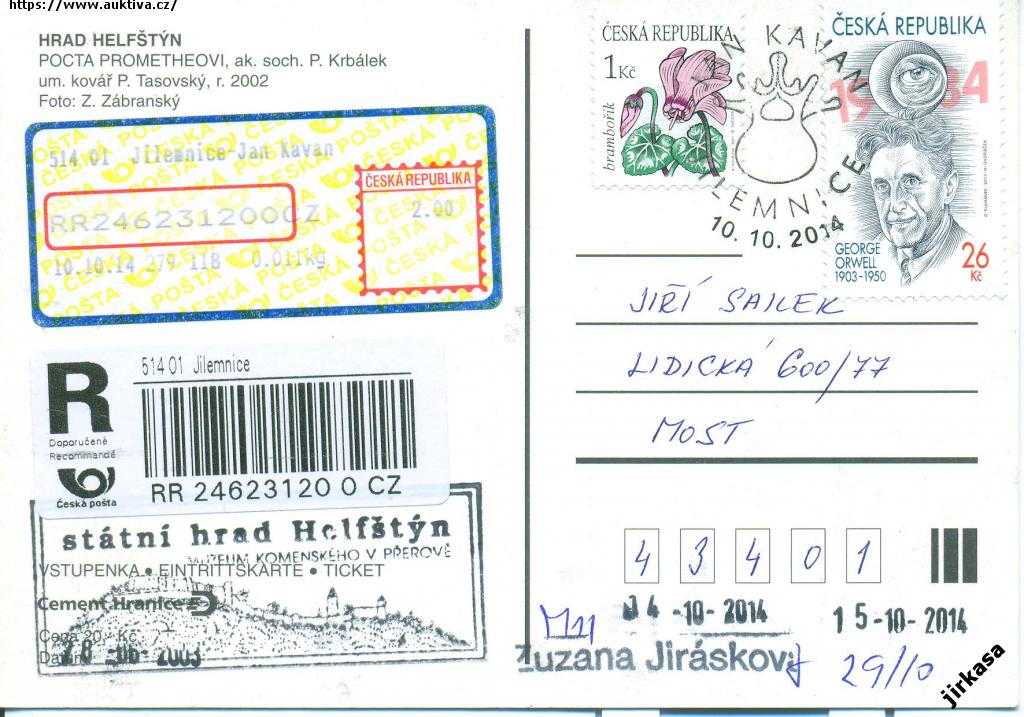 https://www.auktiva.cz/
HRAD HELFŠTÝN
POCTA PROMETHEOVI, ak. soch. P. Krbálek
um. kovář P. Tasovský, r. 2002
Foto: Z. Zábranský
514 01 Jilemnice-Jan Kavan
RR246231200CZ
10.10.14 279 118 0.011kg
ČESKÁ REPUBLIKA
2.00
ČESKÁ POŠTA
R
Doporučeně
Recommandé
Česká pošta
514 01 Jilemnice
RR 24623120 0 CZ
státní hrad Helfštýn
MUZEUM KOMENSKÉHO V PŘEROVĚ
VSTUPENKA • EINTRITTSKARTE • TICKET
Cement Hranice
Cena 20,- Kč
28 -06- 2003
ČESKÁ REPUBLIKA
1 Kč
brambořík
JAN KAVAN
JILEMNICE
10. 10. 2014
ČESKÁ REPUBLIKA
1984
GEORGE
ORWELL
1903-1950
26
Kč
JIŘÍ SAILEK
LIDICKÁ 600/77
MOST
43401
M11
14 -10- 2014
15-10-2014
Zuzana Jirásková
29/10
jirkasa